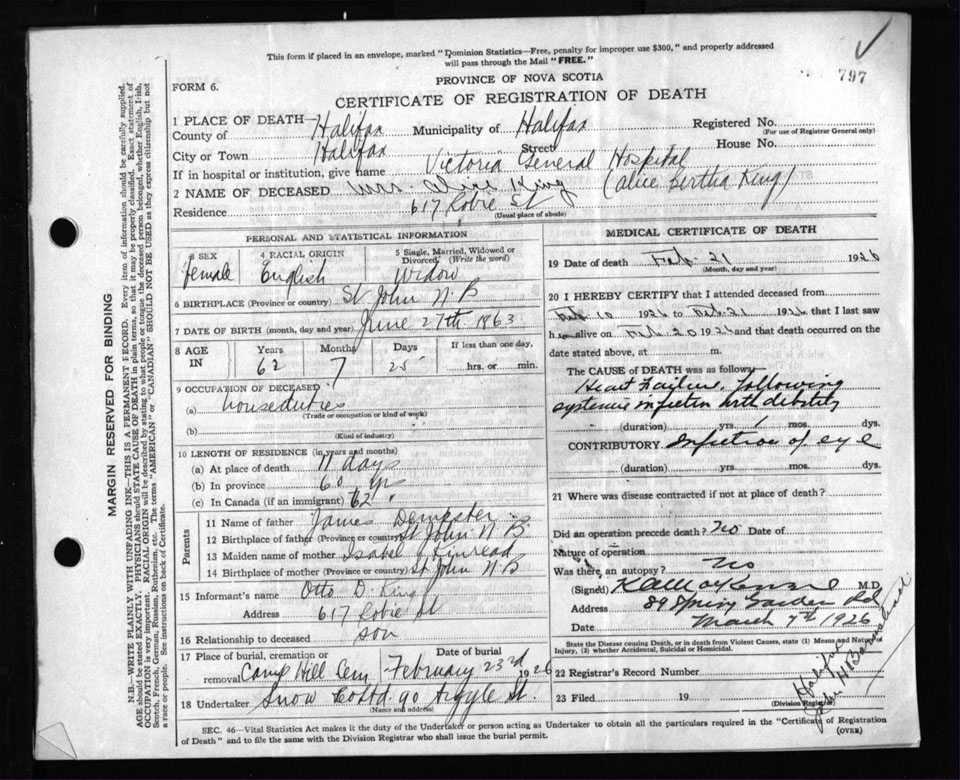 This form if placed in an envelope, marked "Dominion Statistics—Free, penalty for improper use $300," and properly addressed
will pass through the Mail "FREE."
797
PROVINCE OF NOVA SCOTIA
FORM 6.
CERTIFICATE OF REGISTRATION OF DEATH
1 PLACE OF DEATH— Registered No.
County of Halifax Municipality of Halifax (For use of Registrar General only)
City or Town Halifax Street House No.
If in hospital or institution, give name Victoria General Hospital
2 NAME OF DECEASED Mrs. Alice King (Alice Bertha King)
Residence 617 Robie St
(Usual place of abode)
PERSONAL AND STATISTICAL INFORMATION
3 SEX 4 RACIAL ORIGIN 5 Single, Married, Widowed or Divorced (Write the word)
female English Widow
6 BIRTHPLACE (Province or country) St John N.B
7 DATE OF BIRTH (month, day and year) June 27th 1863
8 AGE IN Years Months Days If less than one day,
62 7 25 hrs. or min.
9 OCCUPATION OF DECEASED
(a) houseduties
(Trade or occupation or kind of work)
(b)
(Kind of industry)
10 LENGTH OF RESIDENCE (in years and months)
(a) At place of death 11 days
(b) In province 60 yrs
(c) In Canada (if an immigrant) 62 "
Parents
11 Name of father James Dempster
12 Birthplace of father (Province or country) St John N B
13 Maiden name of mother Isabel J Kinread
14 Birthplace of mother (Province or country) St John N B
15 Informant's name Otto D. King
Address 617 Robie St
16 Relationship to deceased son
17 Place of burial, cremation or removal Date of burial
Camp Hill Cem February 23rd 1926
18 Undertaker Snow Co Ltd. 90 Argyle St.
(Name and address)
MEDICAL CERTIFICATE OF DEATH
19 Date of death Feb. 21 1926
(Month, day and year)
20 I HEREBY CERTIFY that I attended deceased from
Feb. 10 1926 to Feb. 21 1926 that I last saw
her alive on Feb. 20 1926 and that death occurred on the
date stated above, at m.
The CAUSE of DEATH was as follows:
Heart Failure, following
systemic infection with debility
(duration) yrs. 1 mos. dys.
CONTRIBUTORY Infection of eye
(duration) yrs. mos. dys.
21 Where was disease contracted if not at place of death?
Did an operation precede death? No Date of
Nature of operation
Was there an autopsy? No
(Signed) M.D.
Address 89 Spring Garden Rd
Date March 7th 1926
State the Disease causing Death, or in death from Violent Causes, state (1) Means and Nature of
Injury, (2) whether Accidental, Suicidal or Homicidal.
22 Registrar's Record Number
23 Filed 19
(Division Registrar)
Halifax
SEC. 46—Vital Statistics Act makes it the duty of the Undertaker or person acting as Undertaker to obtain all the particulars required in the "Certificate of Registration
of Death" and to file the same with the Division Registrar who shall issue the burial permit.
(OVER)
MARGIN RESERVED FOR BINDING
N.B.—WRITE PLAINLY WITH UNFADING INK—THIS IS A PERMANENT RECORD. Every item of information should be carefully supplied.
AGE should be stated EXACTLY. PHYSICIANS should STATE CAUSE OF DEATH in plain terms, so that it may be properly classified. Exact statement of
OCCUPATION is very important. RACIAL ORIGIN will be described by stating to what people or tongue the deceased person belonged, whether English, Irish,
Scotch, French, German, Russian, Ruthenian, etc. The terms "AMERICAN" or "CANADIAN" SHOULD NOT BE USED as they express citizenship but not
a race or people. See instructions on back of Certificate.